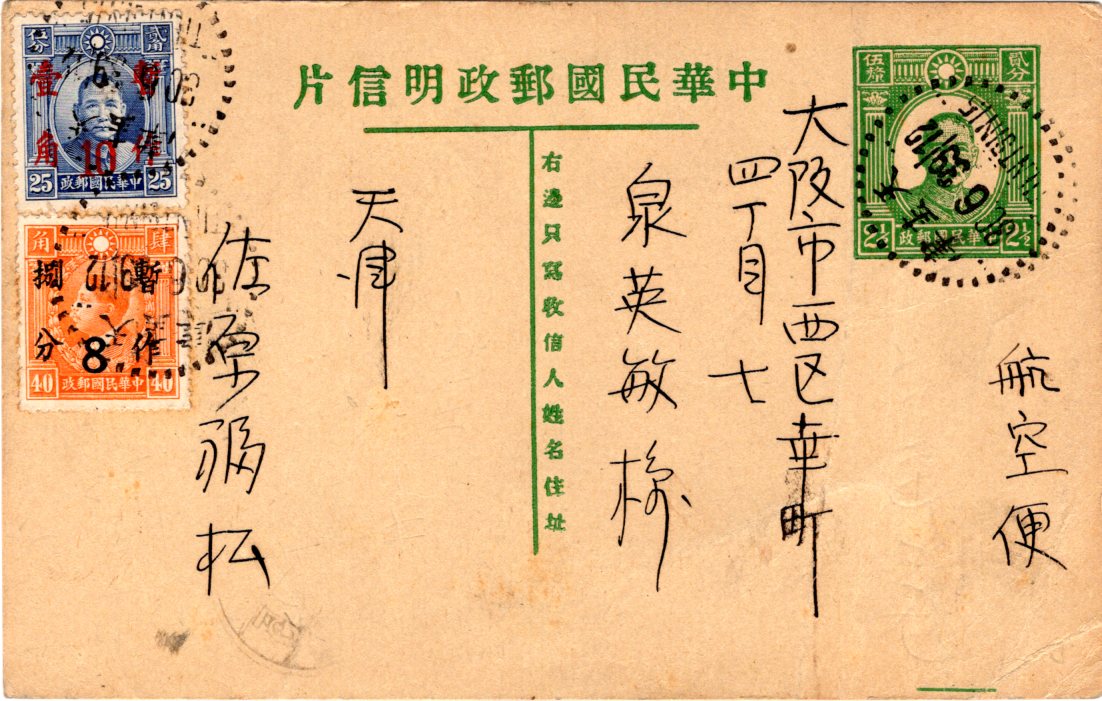 中華民國郵政明信片
貳分
伍釐
2½ 中華民國郵政 2½
航空便
大阪市西区幸町
四丁目七
泉英敏様
右邊只寫收信人姓名住址
天津
佐原福松
貳角
伍分
暫作
壹角
10
25 中華民國郵政 25
肆角
暫作
捌分
8
40 中華民國郵政 40